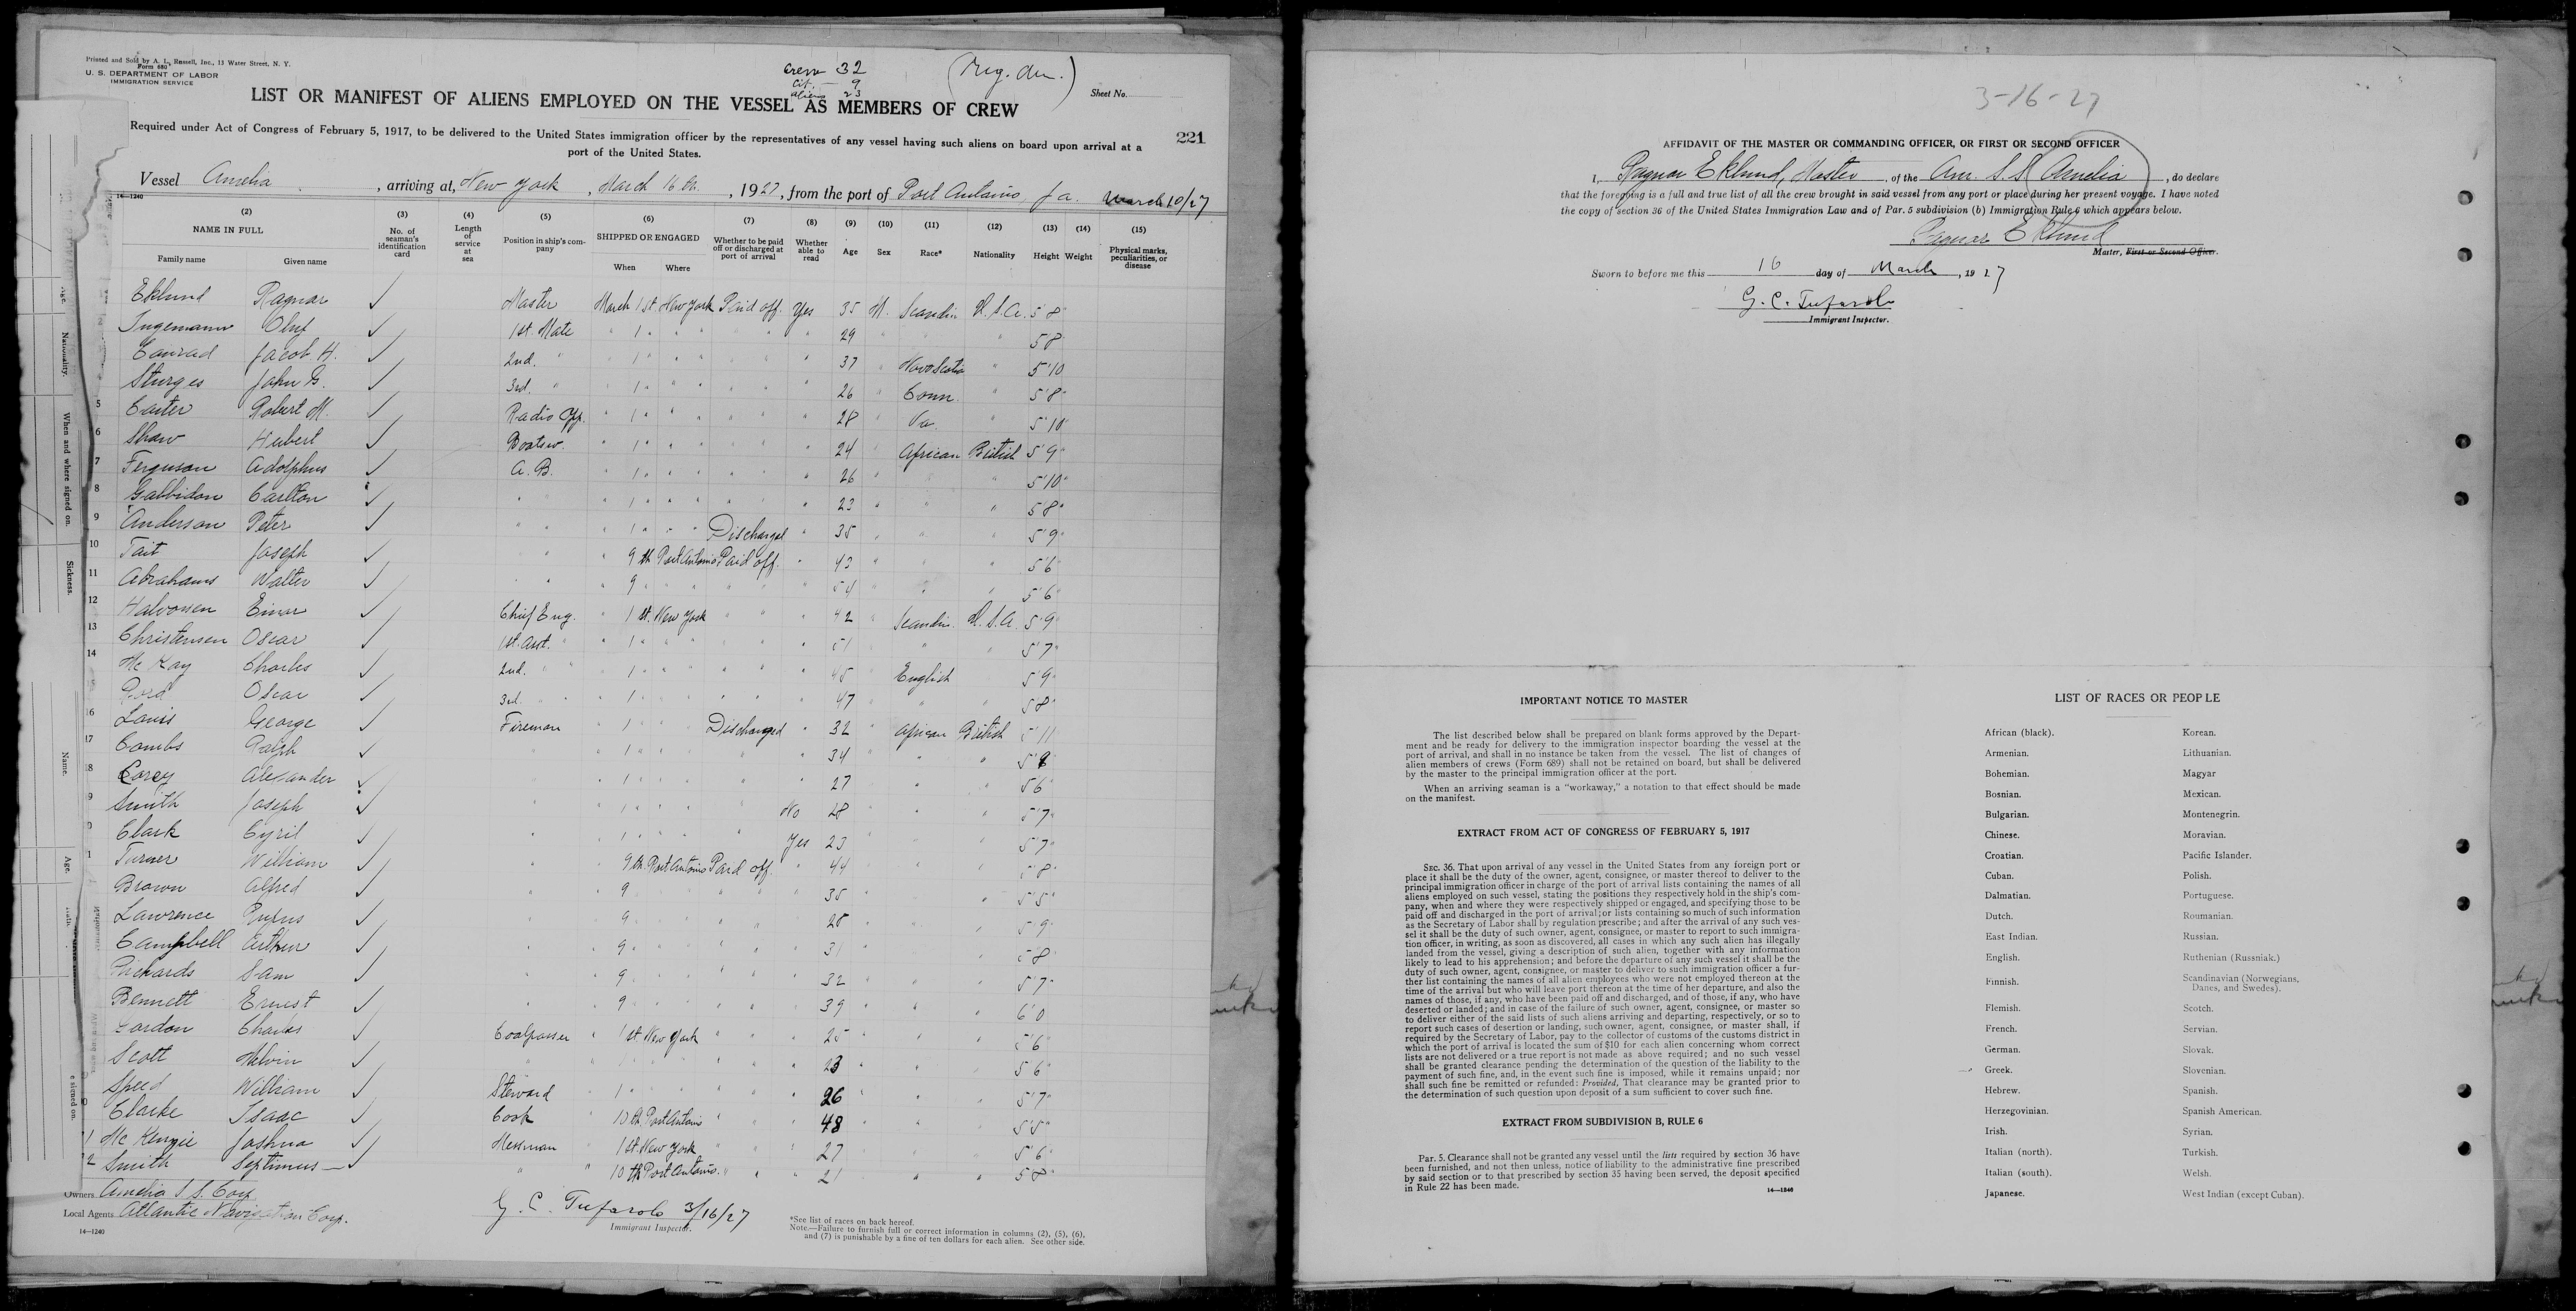 Printed and Sold by A. L. Russell, Inc., 13 Water Street, N. Y.
Form 680
U. S. DEPARTMENT OF LABOR
IMMIGRATION SERVICE
crew 32
cit. — 9
aliens 23
Sheet No.
LIST OR MANIFEST OF ALIENS EMPLOYED ON THE VESSEL AS MEMBERS OF CREW
Required under Act of Congress of February 5, 1917, to be delivered to the United States immigration officer by the representatives of any vessel having such aliens on board upon arrival at a
port of the United States.
221
Vessel Amelia, arriving at, New York, March 16 th., 1927, from the port of Port Antonio Ja. March 10/27
14—1240
(2) (3) (4) (5) (6) (7) (8) (9) (10) (11) (12) (13) (14) (15)
NAME IN FULL
Family name Given name
No. of seaman's identification card
Length of service at sea
Position in ship's company
SHIPPED OR ENGAGED
When Where
Whether to be paid off or discharged at port of arrival
Whether able to read
Age
Sex
Race*
Nationality
Height
Weight
Physical marks, peculiarities, or disease
Eklund Ragnar ✓ Master March 1 st. New York Paid off. Yes 35 M. Scandin. U.S.A. 5'8"
Ingemann Oluf ✓ 1st. Mate " 1 " " " " " " 29 " " " 5'8
Conrad Jacob H. ✓ 2nd. " " 1 " " " " " " 37 " Nova Scotia " 5'10
Sturges John B. ✓ 3rd. " " 1 " " " " " " 26 " Conn. " 5'8"
5 Carter Robert M. ✓ Radio Op. " 1 " " " " " " 28 " Va. " 5'10"
6 Shaw Hubert ✓ Boatsw. " 1 " " " " " " 24 " African British 5'9"
7 Ferguson Adolphus ✓ A. B. " 1 " " " " " " 26 " " " 5'10"
8 Gabbidon Carlton ✓ " " " 1 " " " " " " 23 " " " 5'8"
9 Anderson Peter ✓ " " " 1 " " " Discharged " 35 " " " 5'9"
10 Tait Joseph ✓ " " 9 th Port Antonio Paid off. " 43 " " " 5'6"
11 Abrahams Walter ✓ " " 9 " " " " " 54 " " " 5'6"
12 Halvorsen Einar ✓ Chief Eng. " 1 st. New York " " " 42 " Scandin. U.S.A. 5'9"
13 Christensen Oscar ✓ 1st. Asst. " " 1 " " " " " " 51 " " " 5'7"
14 Mc Kay Charles ✓ 2nd. " " " 1 " " " " " " 45 " English " 5'9"
15 Oscar ✓ 3rd. " " " 1 " " " " " " 47 " " " 5'8"
16 Louis George ✓ Fireman " 1 " " Discharged " 32 " African British 5'11
17 Combs Ralph ✓ " " 1 " " " " " 34 " " " 5'8
8 Corey Alexander ✓ " " 1 " " " " " 27 " " " 5'6"
9 Smith Joseph ✓ " " 1 " " " " No 28 " " " 5'7"
0 Clark Cyril ✓ " " 1 " " " " Yes 23 " " " 5'7"
1 Turner William ✓ " 9 th. Port Antonio Paid off. " 44 " " " 5'8"
Brown Alfred ✓ " " 9 " " " " " 35 " " " 5'5"
Lawrence Rufus ✓ " " 9 " " " " " 28 " " " 5'9"
Campbell Arthur ✓ " " 9 " " " " " 31 " " " 5'8"
Richards Sam ✓ " " 9 " " " " " 32 " " " 5'7"
Bennett Ernest ✓ " " 9 " " " " " 39 " " " 6'0
Gordon Charles ✓ Coalpasser " 1 st. New York " " " 25 " " " 5'6"
Scott Melvin ✓ " " " " " " " 23 " " " 5'6"
Speed William ✓ Steward " 1 " " " " " " 26 " " " 5'7"
0 Clarke Isaac ✓ Cook " 10 th. Port Antonio " " " 48 " " " 5'5"
1 Mc Kenzie Joshua ✓ Messman " 1 st. New York " " " 27 " " " 5'6"
2 Smith Septimus ✓ " " 10 th Port Antonio. " " " 21 " " " 5'8"
Owners Amelia S.S. Corp
Local Agents Atlantic Navigation Corp.
14—1240
G. C. Tufarolo 3/16/27
Immigrant Inspector.
*See list of races on back hereof.
Note.—Failure to furnish full or correct information in columns (2), (5), (6),
and (7) is punishable by a fine of ten dollars for each alien. See other side.
Age.
Nationality.
When and where signed on.
Sickness.
Name.
Age.
e signed on.
3-16-27
AFFIDAVIT OF THE MASTER OR COMMANDING OFFICER, OR FIRST OR SECOND OFFICER
I, Ragnar Eklund, Master, of the Am. S.S. Amelia, do declare
that the foregoing is a full and true list of all the crew brought in said vessel from any port or place during her present voyage. I have noted
the copy of section 36 of the United States Immigration Law and of Par. 5 subdivision (b) Immigration Rule 6 which appears below.
Ragnar Eklund
Master, First or Second Officer.
Sworn to before me this 16 day of March, 1927
G. C. Tufarolo
Immigrant Inspector.
IMPORTANT NOTICE TO MASTER
The list described below shall be prepared on blank forms approved by the Depart-
ment and be ready for delivery to the immigration inspector boarding the vessel at the
port of arrival, and shall in no instance be taken from the vessel. The list of changes of
alien members of crews (Form 689) shall not be retained on board, but shall be delivered
by the master to the principal immigration officer at the port.
When an arriving seaman is a "workaway," a notation to that effect should be made
on the manifest.
EXTRACT FROM ACT OF CONGRESS OF FEBRUARY 5, 1917
SEC. 36. That upon arrival of any vessel in the United States from any foreign port or
place it shall be the duty of the owner, agent, consignee, or master thereof to deliver to the
principal immigration officer in charge of the port of arrival lists containing the names of all
aliens employed on such vessel, stating the positions they respectively hold in the ship's com-
pany, when and where they were respectively shipped or engaged, and specifying those to be
paid off and discharged in the port of arrival; or lists containing so much of such information
as the Secretary of Labor shall by regulation prescribe; and after the arrival of any such ves-
sel it shall be the duty of such owner, agent, consignee, or master to report to such immigra-
tion officer, in writing, as soon as discovered, all cases in which any such alien has illegally
landed from the vessel, giving a description of such alien, together with any information
likely to lead to his apprehension; and before the departure of any such vessel it shall be the
duty of such owner, agent, consignee, or master to deliver to such immigration officer a fur-
ther list containing the names of all alien employees who were not employed thereon at the
time of the arrival but who will leave port thereon at the time of her departure, and also the
names of those, if any, who have been paid off and discharged, and of those, if any, who have
deserted or landed; and in case of the failure of such owner, agent, consignee, or master so
to deliver either of the said lists of such aliens arriving and departing, respectively, or so to
report such cases of desertion or landing, such owner, agent, consignee, or master shall, if
required by the Secretary of Labor, pay to the collector of customs of the customs district in
which the port of arrival is located the sum of $10 for each alien concerning whom correct
lists are not delivered or a true report is not made as above required; and no such vessel
shall be granted clearance pending the determination of the question of the liability to the
payment of such fine, and, in the event such fine is imposed, while it remains unpaid; nor
shall such fine be remitted or refunded: Provided, That clearance may be granted prior to
the determination of such question upon deposit of a sum sufficient to cover such fine.
EXTRACT FROM SUBDIVISION B, RULE 6
Par. 5. Clearance shall not be granted any vessel until the lists required by section 36 have
been furnished, and not then unless, notice of liability to the administrative fine prescribed
by said section or to that prescribed by section 35 having been served, the deposit specified
in Rule 22 has been made.
14—1240
LIST OF RACES OR PEOPLE
African (black).
Armenian.
Bohemian.
Bosnian.
Bulgarian.
Chinese.
Croatian.
Cuban.
Dalmatian.
Dutch.
East Indian.
English.
Finnish.
Flemish.
French.
German.
Greek.
Hebrew.
Herzegovinian.
Irish.
Italian (north).
Italian (south).
Japanese.
Korean.
Lithuanian.
Magyar
Mexican.
Montenegrin.
Moravian.
Pacific Islander.
Polish.
Portuguese.
Roumanian.
Russian.
Ruthenian (Russniak.)
Scandinavian (Norwegians,
Danes, and Swedes).
Scotch.
Servian.
Slovak.
Slovenian.
Spanish.
Spanish American.
Syrian.
Turkish.
Welsh.
West Indian (except Cuban).